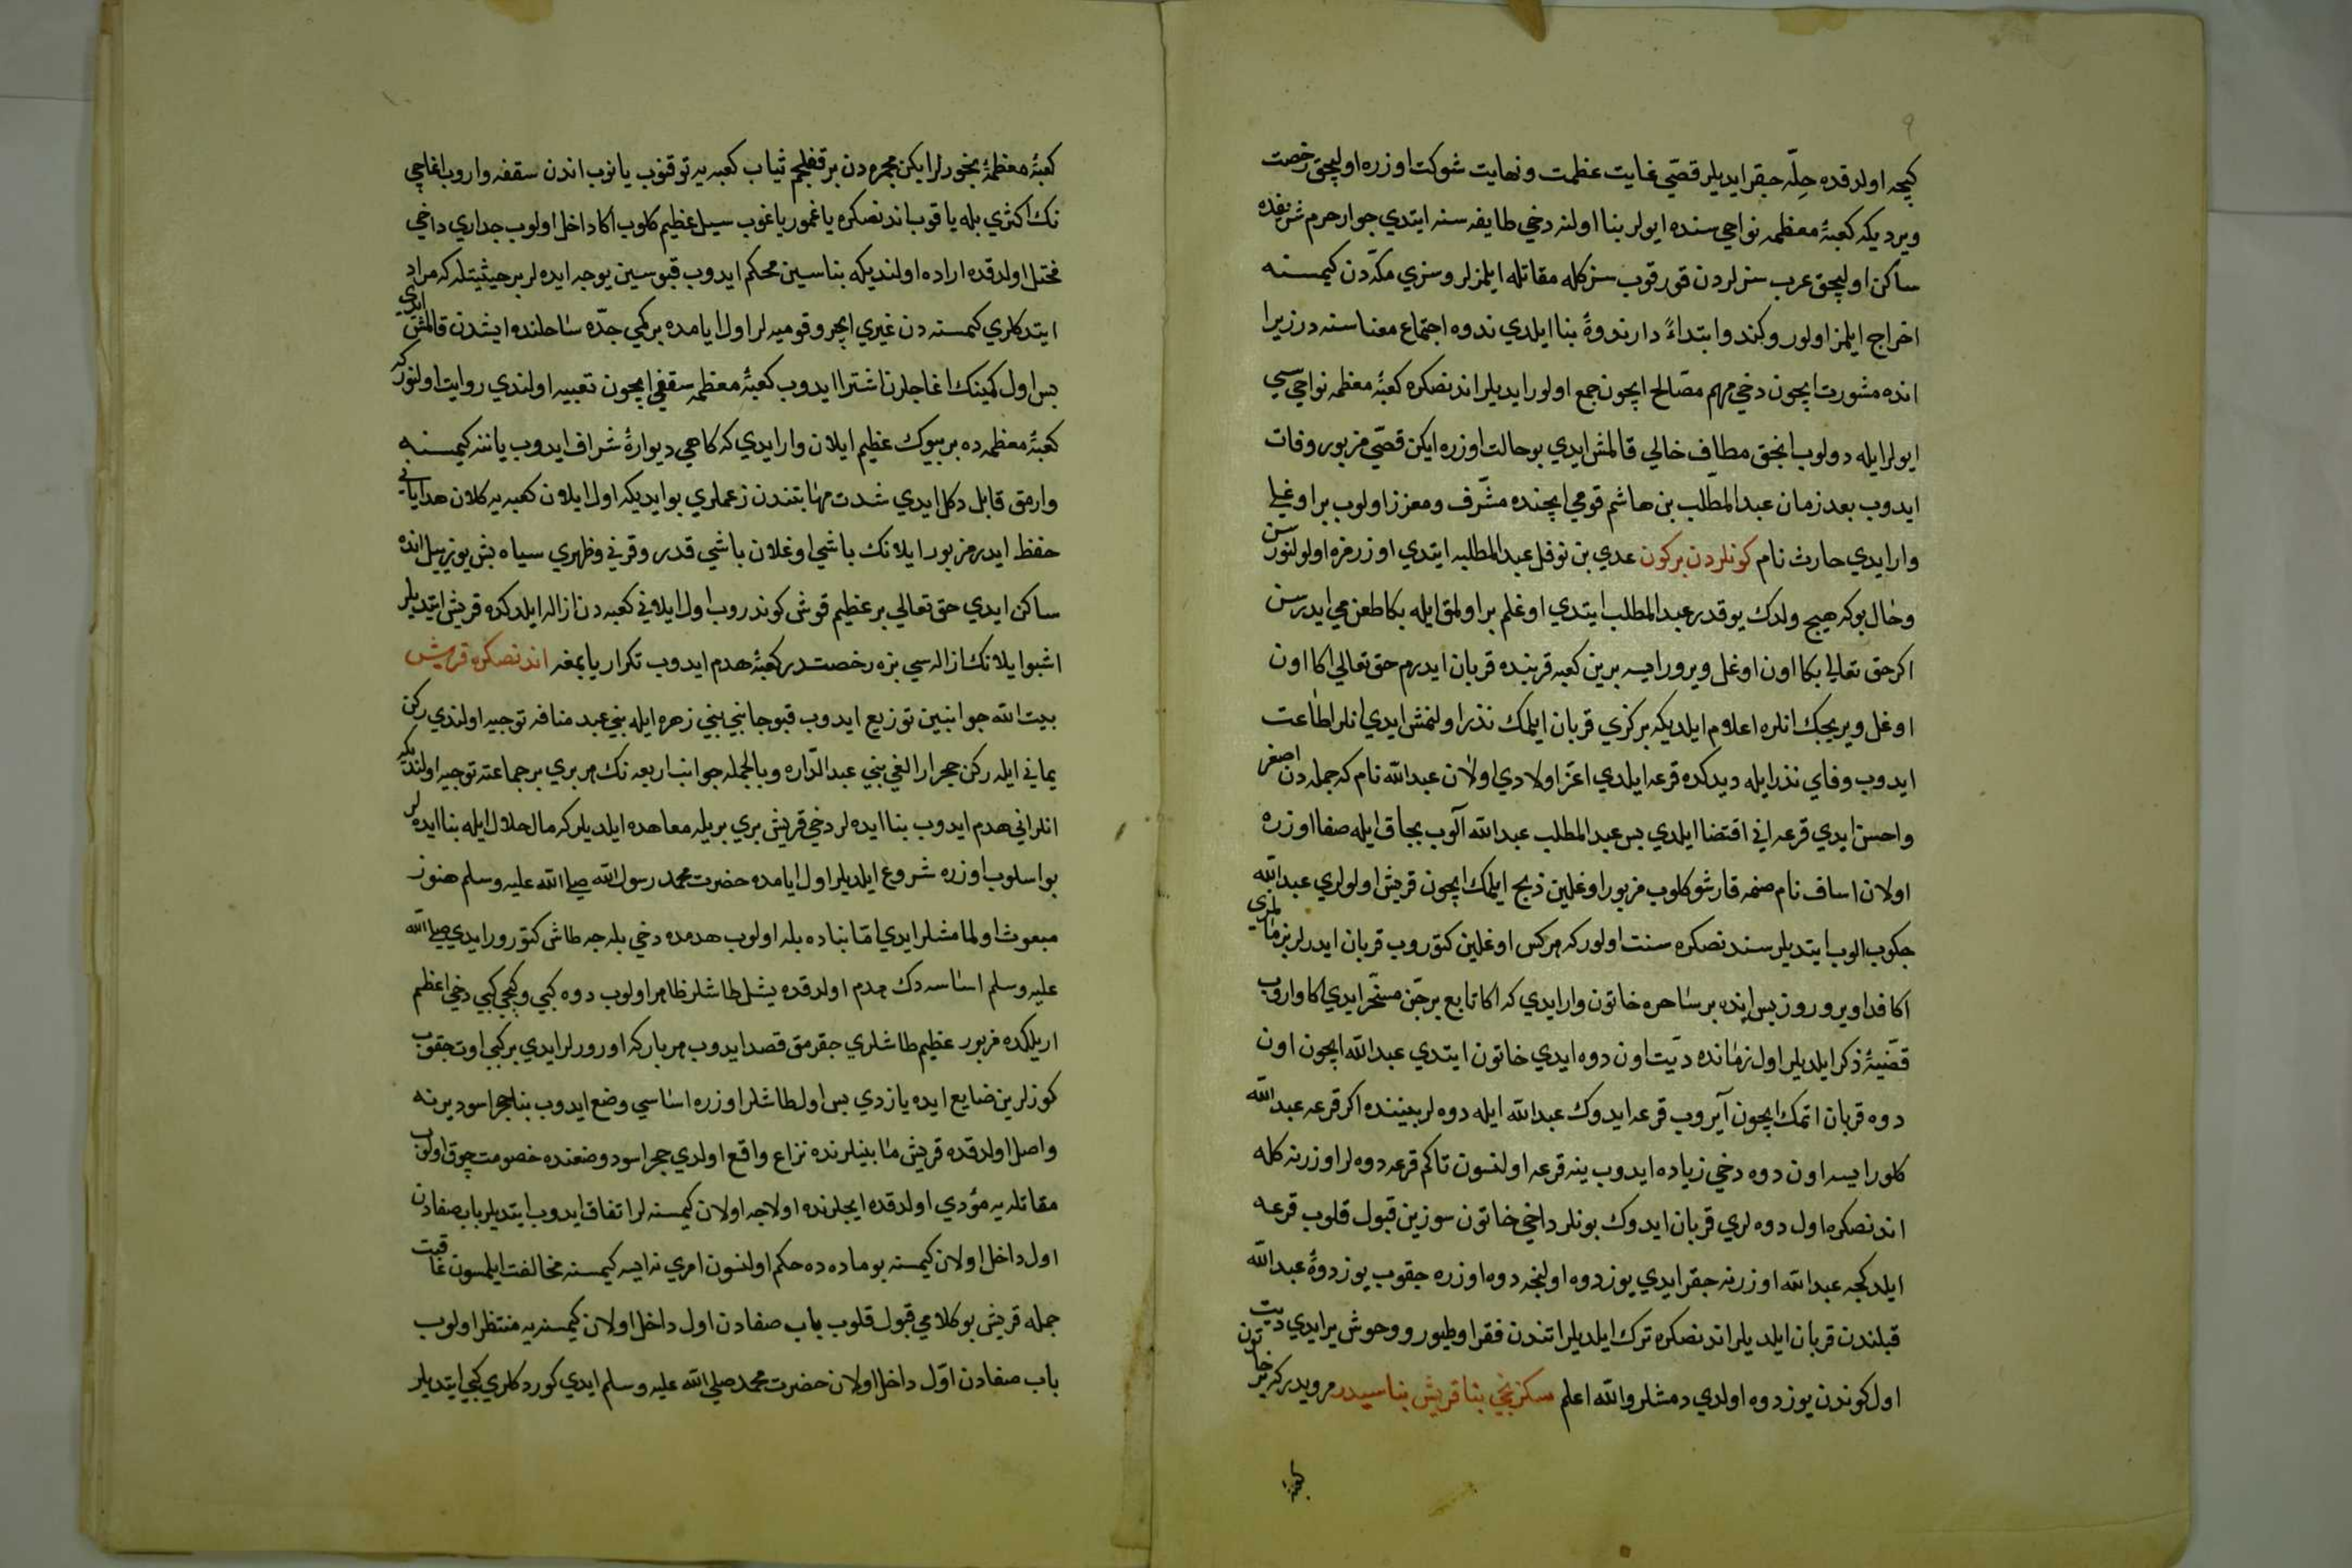 ٩
كيجه اولدقده حِلّه جقر ايديلر قصّي غايت عظمت و نهايت شوكت اوزره اوليجق رخصت
ويرديكه كعبۀ معظمه نواحي سنده ايولر بنا اولنه دخي طايفه سنه ايتدي جوار حرم شريفده
ساكن اوليجق عرب سزلردن قورقوب سزكله مقاتله ايلمزلر و سزي مكّه دن كيمسنه
اخراج ايلمز اولور و كندو ابتداءً دار ندوۀ بنا ايلدي ندوه اجتماع معناسنه در زيرا
انده مشورت ايچون دخي مهم مصالح ايچون جمع اولور ايديلر اندنصكره كعبۀ معظمه نواحيسي
ايولر ايله دولوب انجق مطاف خالي قالمش ايدي بو حالت اوزره ايكن قصّي مزبور وفات
ايدوب بعد زمان عبد المطّلب بن هاشم قومي ايچنده مشّرف و معزز اولوب بر اوغلي
وار ايدي حارث نام كونلردن بر كون عدي بن نوفل عبد المطلبه ايتدي اوزرمزه اولولنورسن
و حال بوكه هيچ ولدك يوقدر عبد المطلب ايتدي اوغلم بر اولمق ايله بكا طعن مي ايدرسن
اكر حق تعالي بكا اون اوغل ويرور ايسه برين كعبه قربنده قربان ايدرم حق تعالي اكا اون
اوغل ويريجك انلره اعلام ايلديكه بركزي قربان ايلمك نذر اولنمش ايدي انلر اطاعت
ايدوب وفاي نذر ايله ديدكده قرعه ايلدي اعّز اولادي اولان عبد الله نام كه جمله دن اصغر
و احسن ايدي قرعه اني اقتضا ايلدي بس عبد المطلب عبد الله آلوب بجاق ايله صفا اوزره
اولان اساف نام صنمه قارشو كلوب مزبور اوغلين ذبح ايلمك ايچون قريش اولولري عبد الله
چكوب الوب ايتديلر سندنصكره سنت اولور كه هركس اوغلين كتوروب قربان ايدرلر بز مالمزي
اكا فدا ويروروز بس انده بر ساحره خاتون وار ايدي كه اكا تابع بر جّن مسّخر ايدي اكا واروب
قضّيۀ ذكر ايلديلر اول زمانده ديّت اون دوه ايدي خاتون ايتدي عبد الله ايچون اون
دوه قربان اتمك ايچون آيروب قرعه ايدوك عبد الله ايله دوه لر بيننده اكر قرعه عبد الله
كلور ايسه اون دوه دخي زياده ايدوب ينه قرعه اولنسون تا كم قرعه دوه لر اوزرنه كله
اندنصكره اول دوه لري قربان ايدوك بونلر داخي خاتون سوزين قبول قلوب قرعه
ايلدكجه عبد الله اوزرنه جقر ايدي يوز دوه اولنجه دوه اوزره جقوب يوز دوۀ عبد الله
قبلندن قربان ايلديلر اندنصكره ترك ايلديلر اتندن فقرا و طيور و وحوش ير ايدي ديت
اول كوندن يوز دوه اولدي دمشلر والله اعلم سكزنجي بنا قريش بناسيدر مرويدر كه بر خاتون
كعبۀ
كعبۀ معظمۀ بخورلر ايكن مجمره دن بر قغلجم ثياب كعبه يه توقنوب يانوب اندن سقفه واروب اغاجي
نك اكثري بله ياقوب اندنصكره ياغمور ياغوب سيل عظيم كلوب اكا داخل اولوب جداري داخي
مختل اولدقده اراده اولنديكه بناسين محكم ايدوب قپوسين يوجه ايده لر بر حيثيتله كه مراد
ايتدكلري كمسنه دن غيري ايچرو قوميه لر اول ايامده بر كمي جدّه ساحلنده ايشدن قالمش ايدي
بس اول كمينك اغاجلرن اشترا ايدوب كعبۀ معظمه سقفي ايچون تعبيه اولندي روايت اولنور كه
كعبۀ معظمه ده بر بيوك عظيم ايلان وار ايدي كه كاهي ديوارۀ شراف ايدوب ياننه كيمسنه
وارمق قابل دكل ايدي شدت مهابتندن زعملري بو ايديكه اول ايلان كعبه يه كلان هداياني
حفظ ايدر مزبور ايلانك باشي اوغلان باشي قدر و قرني و ظهري سياه بش يوز ييل انده
ساكن ايدي حق تعالي بر عظيم قوش كوندروب اول ايلاني كعبه دن ازاله ايلدكده قريش ايتديلر
اشبو ايلانك ازاله سي بزه رخصتدر كعبۀ هدم ايدوب تكرار يابمغه اندنصكره قريش
بيت الله جوانبين توزيع ايدوب قپو جانبي بني زهره ايله بني عبد منافه توجيه اولندي ركن
يماني ايله ركن حجر ارالغي بني عبد الدّاره و بالجمله جوانب اربعه نك هر بري بر جماعته توجيه اولنديكه
انلر اني هدم ايدوب بنا ايده لر دخي قريش بري بريله معاهده ايلديلر كه مال حلال ايله بنا ايده لر
بو اسلوب اوزره شروع ايلديلر اول ايامده حضرت محمد رسول الله صلي الله عليه وسلم هنوز
مبعوث اولمامشلر ايدي امّا بناده بله اولوب هدمده دخي بله جه طاش كتورور ايدي صلي الله
عليه وسلم اساسه دك هدم اولدقده يشل طاشلر ظاهر اولوب دوه كبي و كچي كبي دخي اعظم
اريلكده مزبور عظيم طاشلري جقرمق قصد ايدوب هر بار كه اورورلر ايدي بركبي اوت جقوب
كوزلرين ضايع ايده يازدي بس اول طاشلر اوزره اساسي وضع ايدوب بنا حجر اسود يرنه
واصل اولدقده قريش مابينلرنده نزاع واقع اولدي حجر اسود وضعنده خصومت چوق اولوب
مقاتله يه مؤدي اولدقده ايچلرنده اولاجه اولان كيمسنه لر اتفاق ايدوب ايتديلر باب صفادن
اول داخل اولان كيمسنه بو ماده ده حكم اولنسون امري نه ايسه كيمسنه مخالفت ايلمسون عاقبت
جمله قريش بو كلامي قبول قلوب باب صفادن اول داخل اولان كيمسنه يه منتظر اولوب
باب صفادن اوّل داخل اولان حضرت محمد صلي الله عليه وسلم ايدي كوردكلري كبي ايتديلر